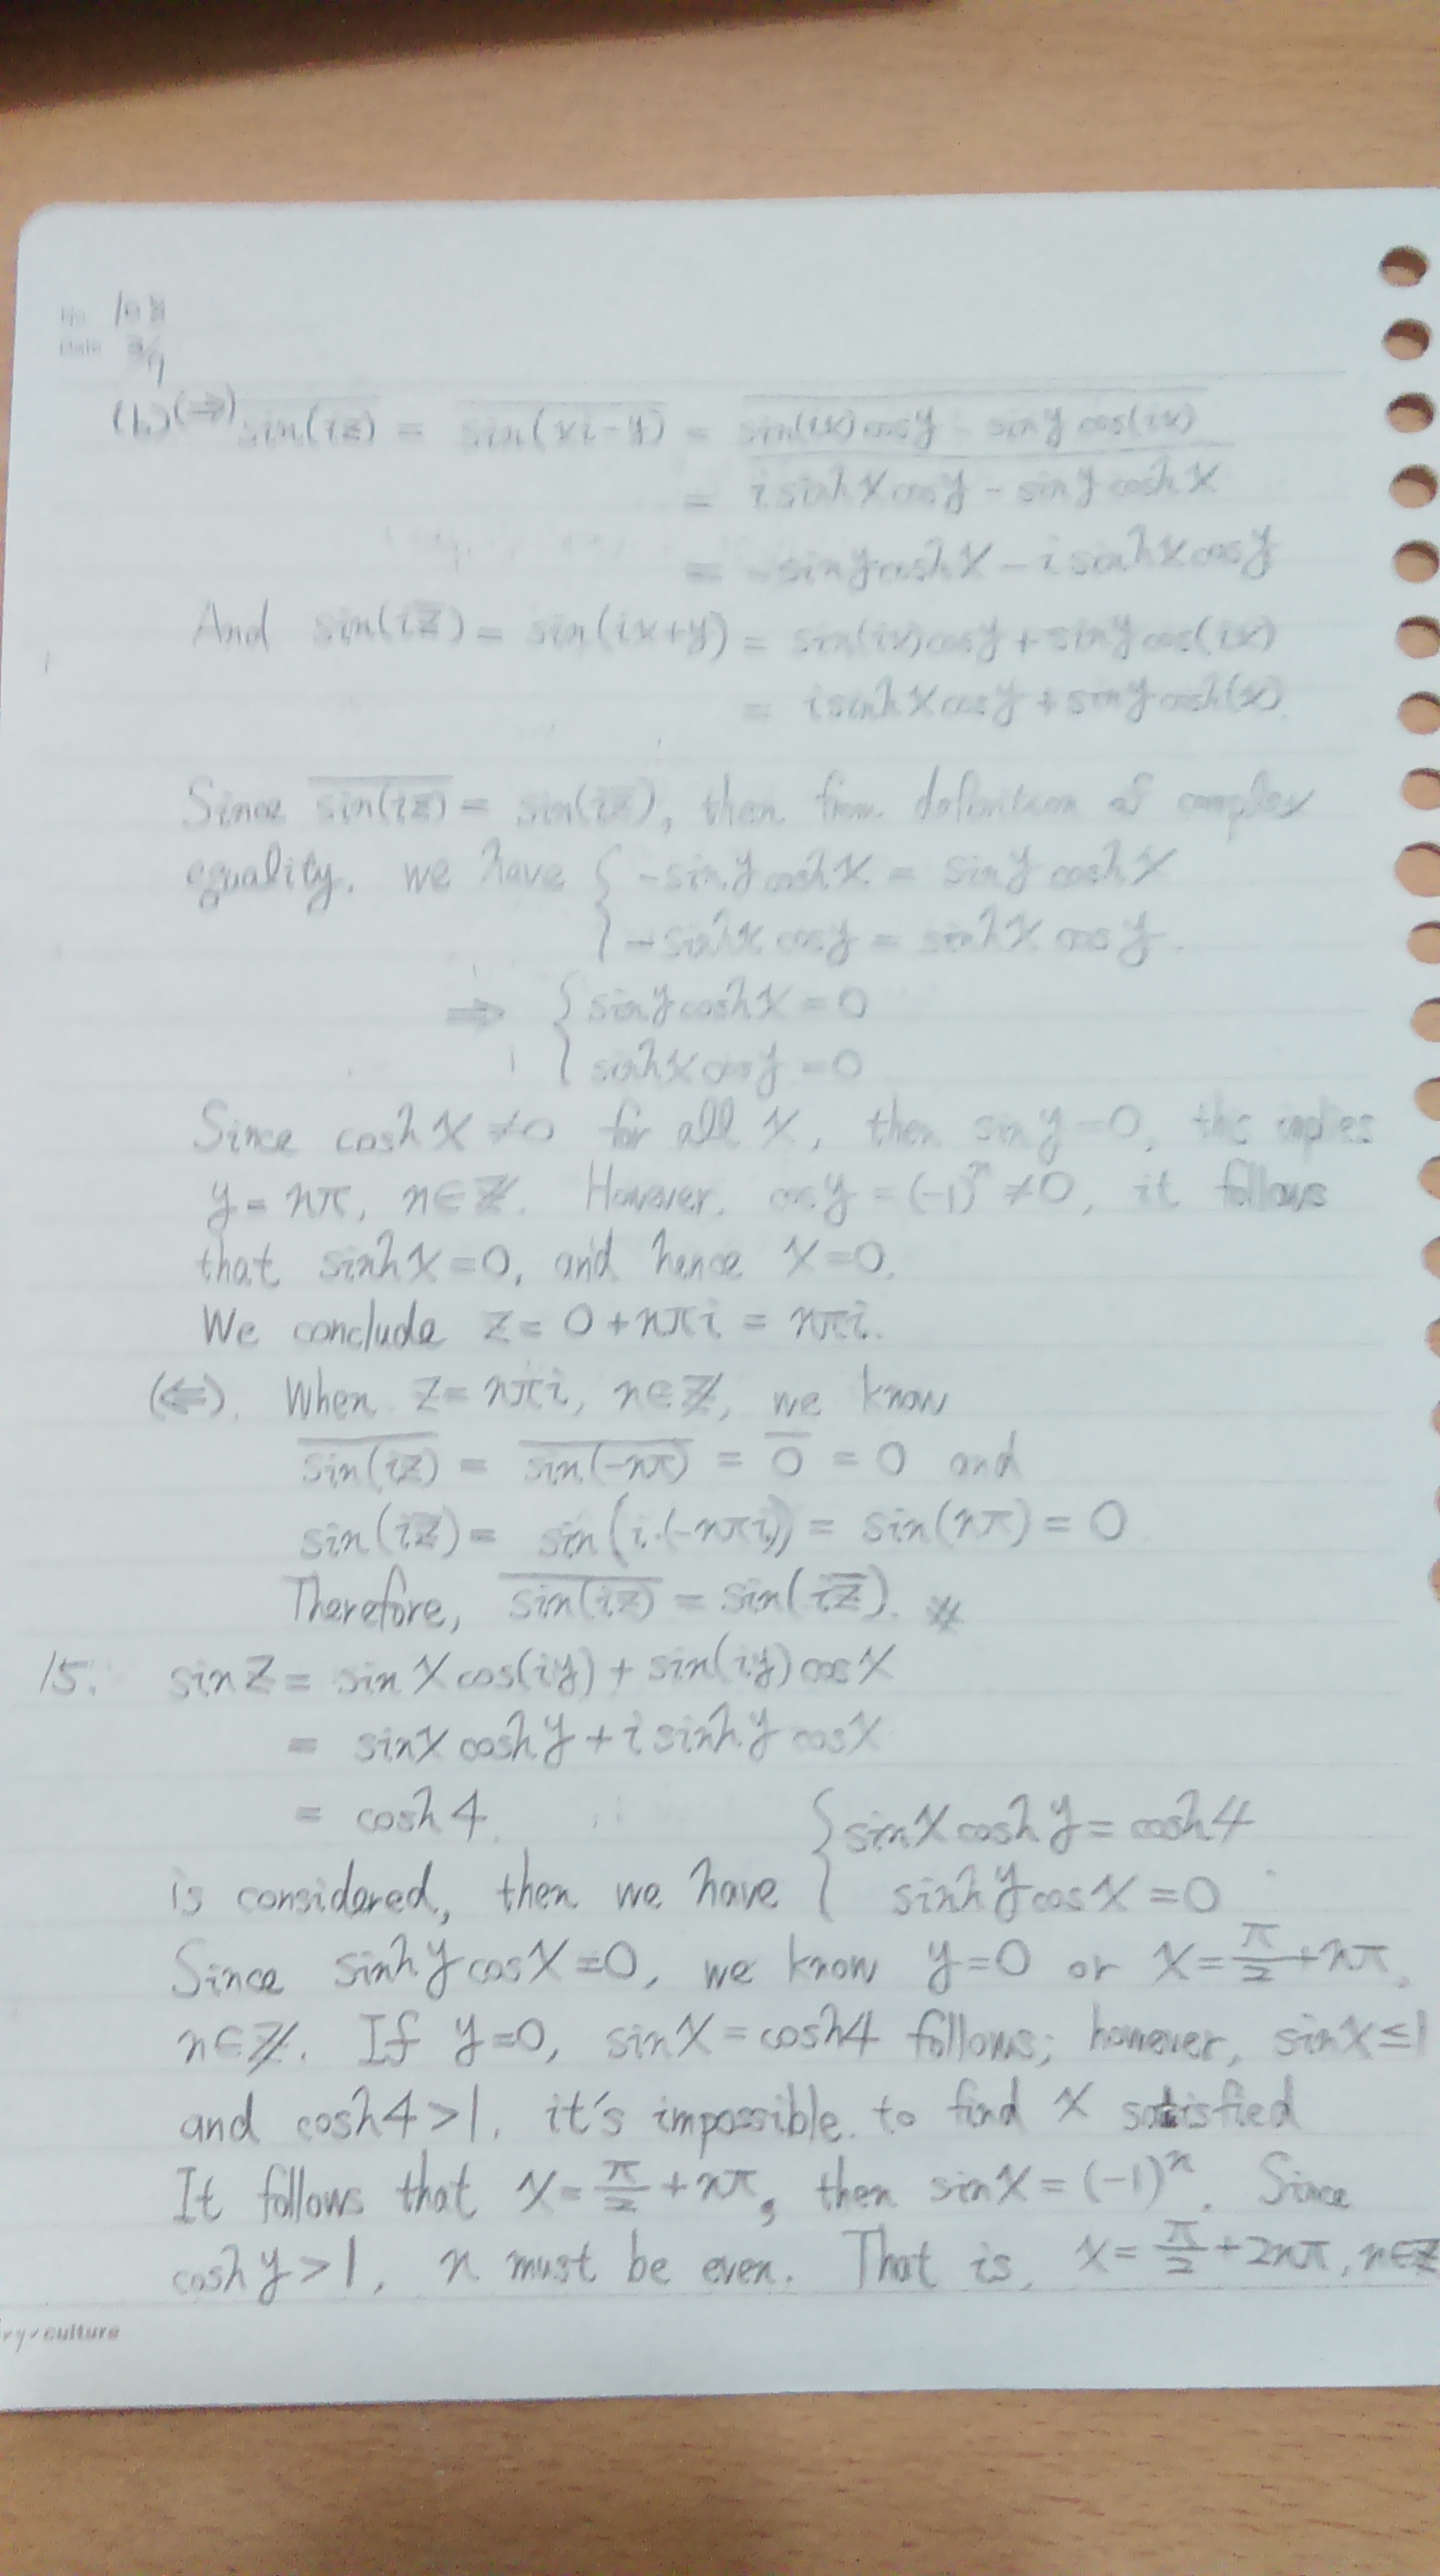 No. 108
Date 3/9
(b)(⇒) \overline{sin(iz)} = \overline{sin(xi-y)} = \overline{sin(ix)cosy - siny cos(ix)}
= \overline{i sinhx cosy - siny coshx}
= -siny coshx - i sinhx cosy
And sin(i\overline{z}) = sin(ix+y) = sin(ix)cosy + siny cos(ix)
= i sinhx cosy + siny cosh(x).
Since \overline{sin(iz)} = sin(i\overline{z}), then from definition of complex
equality, we have { -siny coshx = siny coshx
-sinhx cosy = sinhx cosy.
⇒ { siny coshx = 0
sinhx cosy = 0
Since coshx ≠ 0 for all x, then siny = 0, this implies
y = nπ, n∈ℤ. However, cosy = (-1)^n ≠ 0, it follows
that sinhx = 0, and hence x = 0.
We conclude z = 0 + nπi = nπi.
(⇐). When z = nπi, n∈ℤ, we know
\overline{sin(iz)} = \overline{sin(-nπ)} = \overline{0} = 0 and
sin(i\overline{z}) = sin(i·(-nπi)) = sin(nπ) = 0
Therefore, \overline{sin(iz)} = sin(i\overline{z}). #
15. sinz = sinx cos(iy) + sin(iy) cosx
= sinx coshy + i sinhy cosx
= cosh4.
is considered, then we have { sinx coshy = cosh4
sinhy cosx = 0.
Since sinhy cosx = 0, we know y = 0 or x = π/2 + nπ,
n∈ℤ. If y=0, sinx = cosh4 follows; however, sinx ≤ 1
and cosh4 > 1, it's impossible to find x satisfied
It follows that x = π/2 + nπ, then sinx = (-1)^n. Since
coshy > 1, n must be even. That is, x = π/2 + 2nπ, n∈ℤ
culture